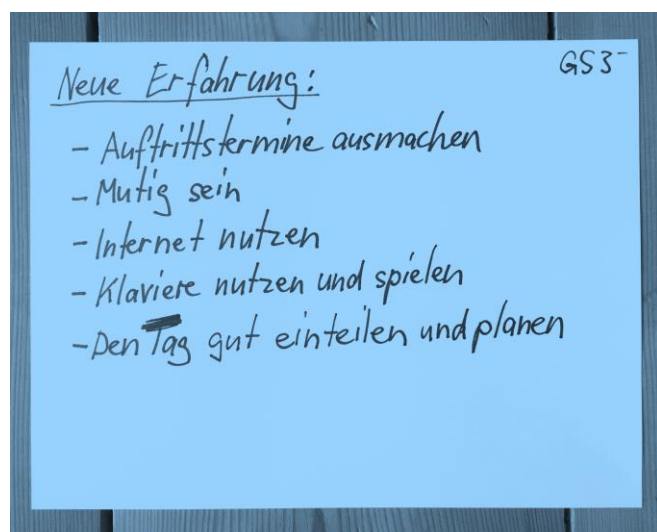 GS3-
Neue Erfahrung:
- Auftrittstermine ausmachen
- Mutig sein
- Internet nutzen
- Klaviere nutzen und spielen
- Den Tag gut einteilen und planen